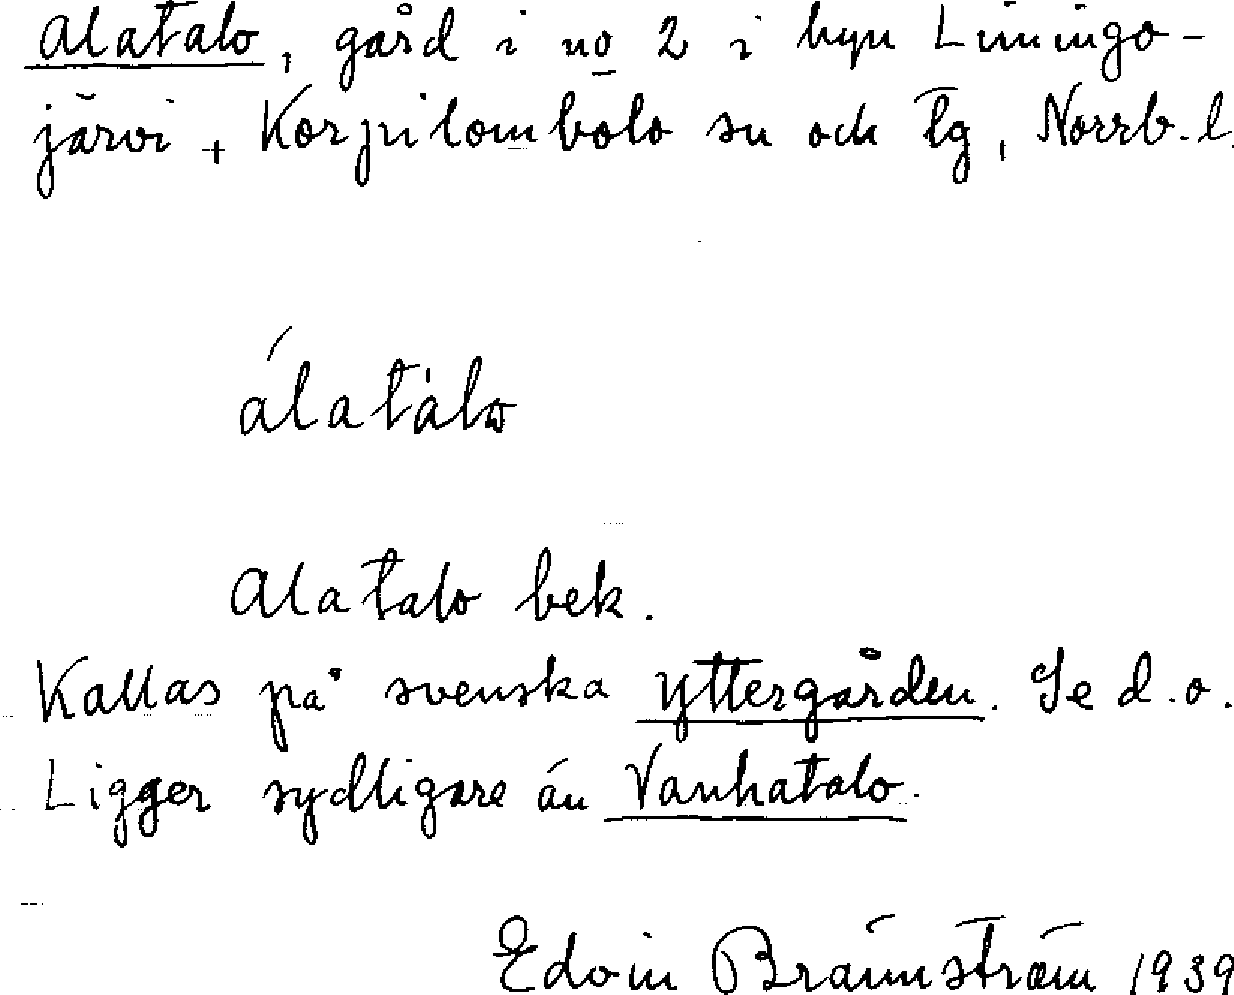 Alatalo, gård i no 2 i byn Liviningo-
järvi, Korpilombolo sn och tg, Norrb. l.
álatàlo
Alatalo bek.
Kallas på svenska Yttergården. Se d.o.
Ligger sydligare än Vanhatalo.
Edvin Brännström 1939